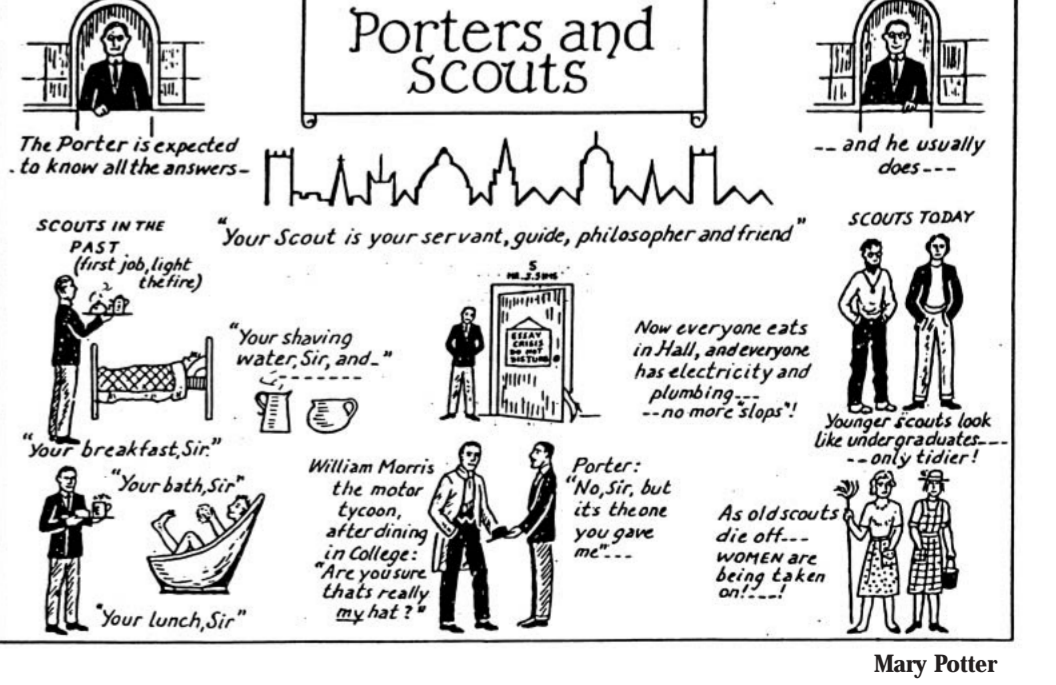 Porters and
Scouts
The Porter is expected
to know all the answers-
-- and he usually
does---
"Your Scout is your servant, guide, philosopher and friend"
SCOUTS IN THE
PAST
(first job, light
the fire)
"Your breakfast, Sir."
"Your shaving
water, Sir, and-"
"Your bath, Sir"
"Your lunch, Sir"
5
MR. J. SIMS
ESSAY
CRISIS
DO NOT
DISTURB
William Morris
the motor
tycoon,
after dining
in College:
"Are you sure
thats really
my hat?"
Porter:
"No, Sir, but
it's the one
you gave
me"---
Now everyone eats
in Hall, and everyone
has electricity and
plumbing---
--no more "slops"!
SCOUTS TODAY
Younger scouts look
like undergraduates----
--only tidier!
As old scouts
die off---
WOMEN are
being taken
on!---!
Mary Potter